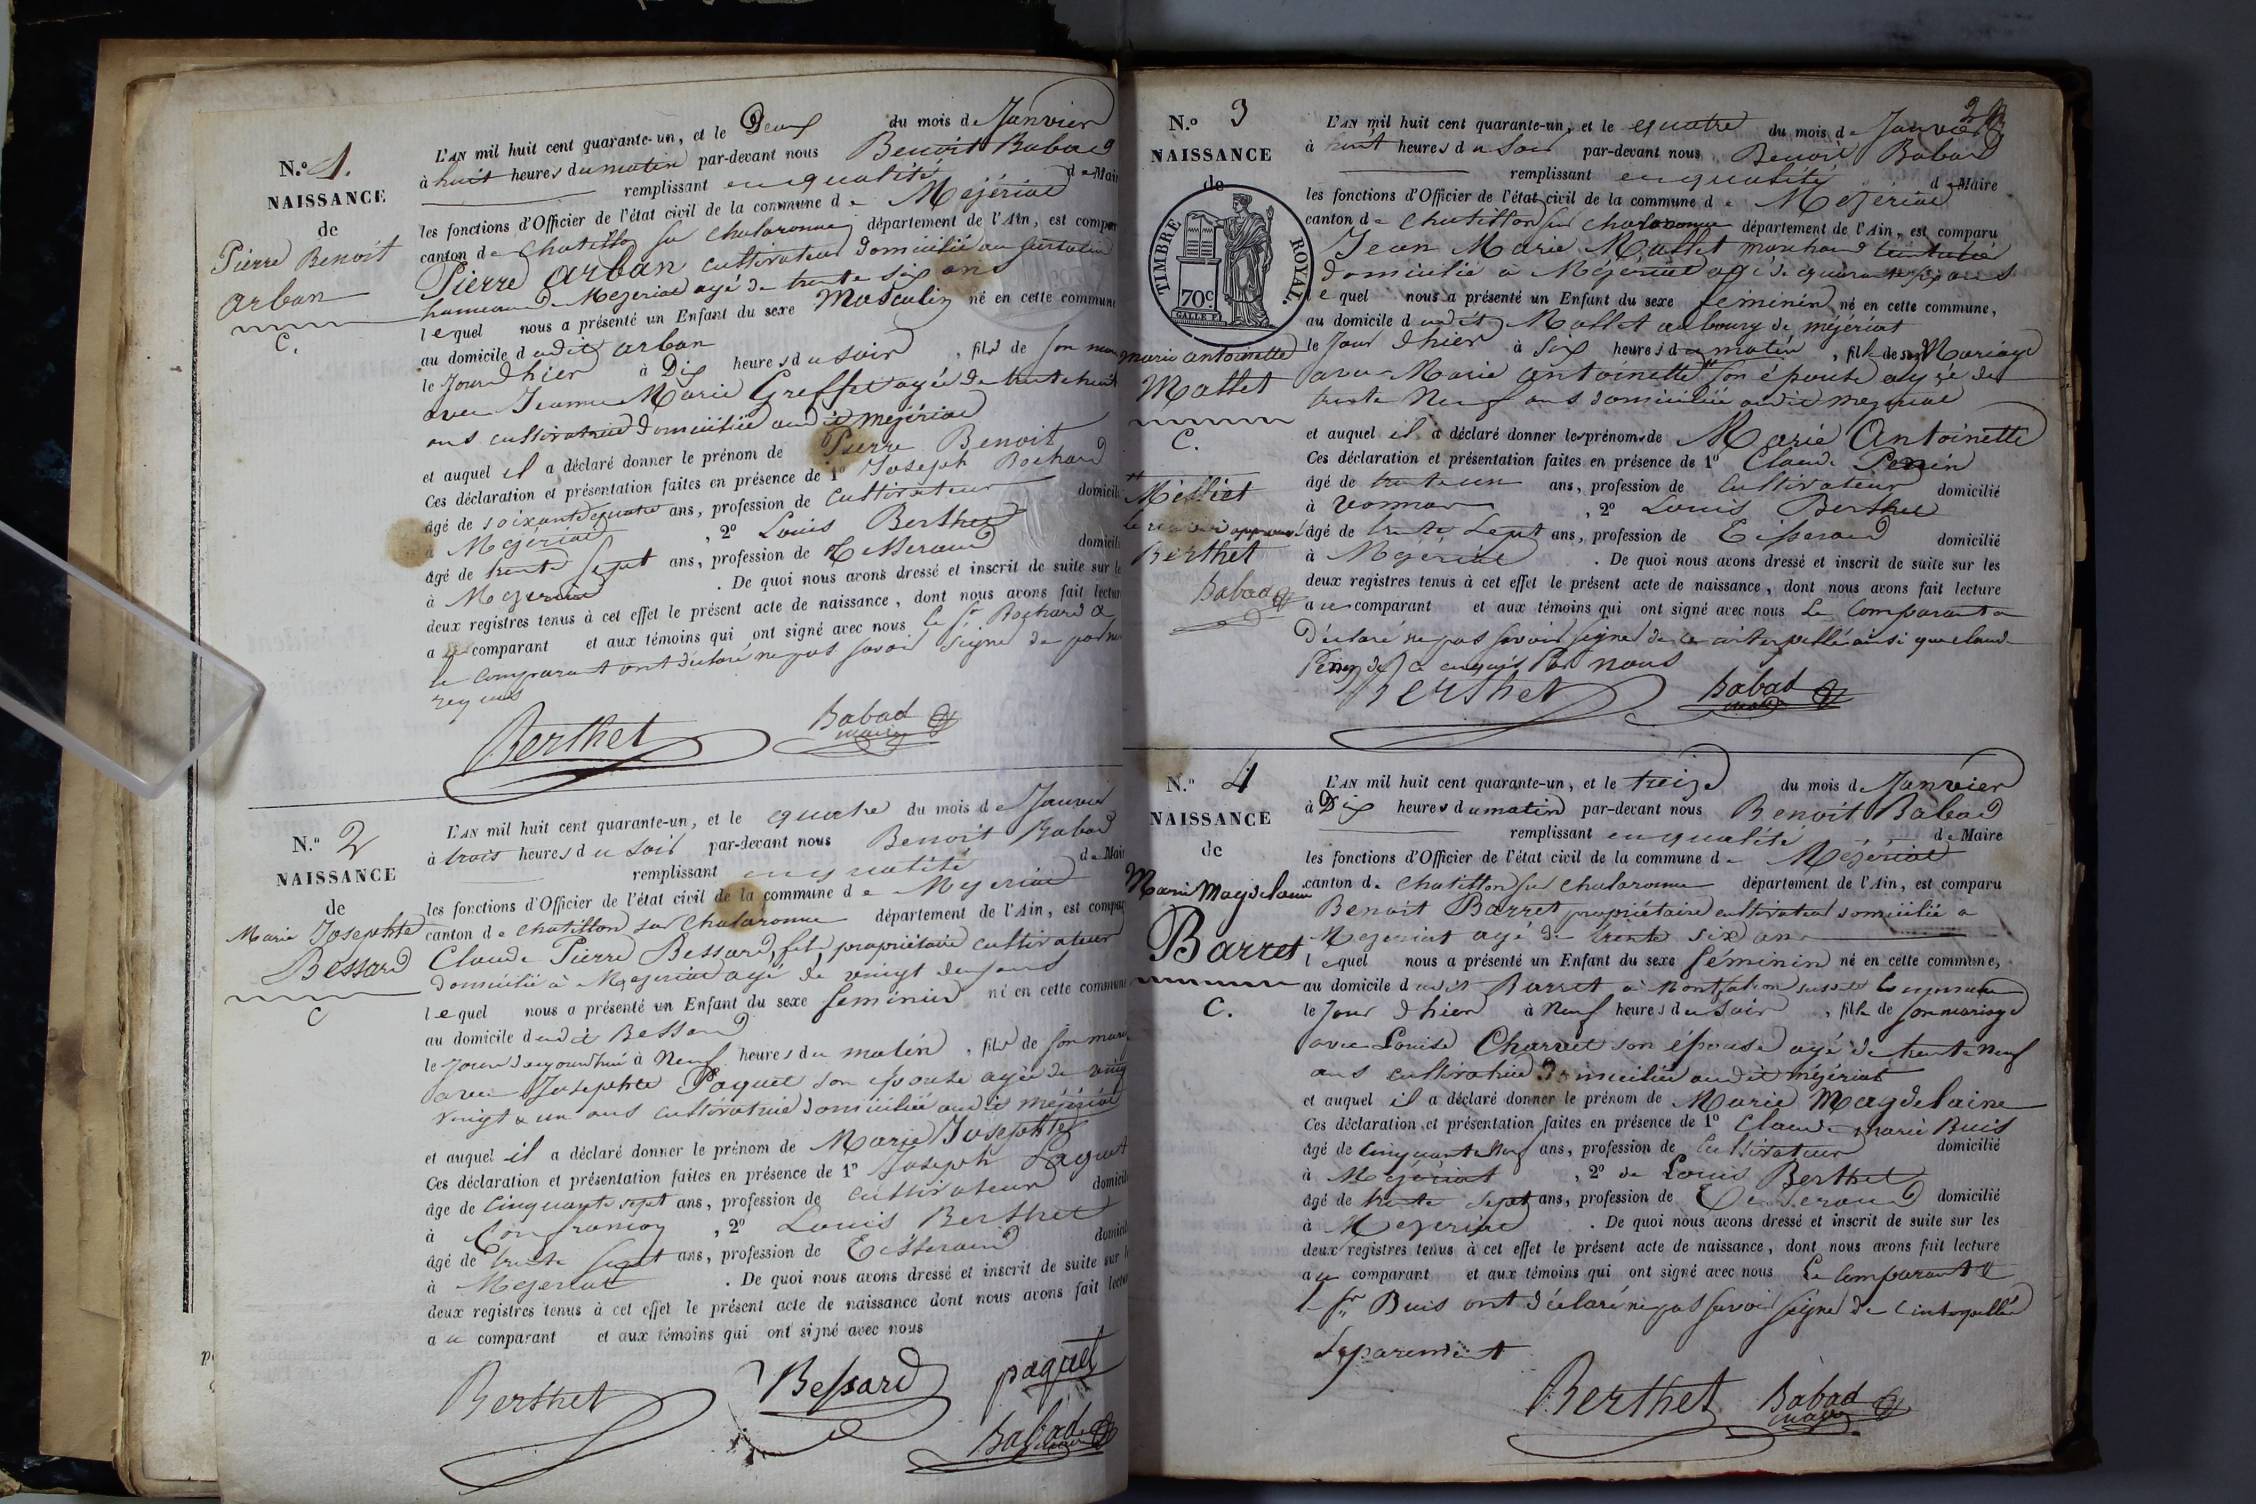 N.o 1.
NAISSANCE
de
Pierre Benoit
arban
C.
L'AN mil huit cent quarante-un, et le Deux du mois de Janvier
à huit heures du matin par-devant nous Benoit Babad
remplissant en qualité de Mair
les fonctions d'Officier de l'état civil de la commune de Mézériat
canton de Chatillon sur Chalaronne département de l'Ain, est compar
Pierre arban cultivateur domicilié au
hameau de Mezeriat agé de trente six ans
lequel nous a présenté un Enfant du sexe Masculin né en cette commune
au domicile dudit arban
le Jour d'hier à Dix heures du soir, fils de son mar
avec Jeanne Marie Greffet agée de trente huit
ans cultivatrice domiciliée audit mézériat
et auquel il a déclaré donner le prénom de Pierre Benoit
Ces déclaration et présentation faites en présence de 1o Joseph Bochard
âgé de soixante quatre ans, profession de cultivateur domicili
à Mezeriat, 2o Louis Berthet
âgé de trente sept ans, profession de Tisserand domicili
à Mezeriat. De quoi nous avons dressé et inscrit de suite sur le
deux registres tenus à cet effet le présent acte de naissance, dont nous avons fait lectur
au comparant et aux témoins qui ont signé avec nous le Sr. Bochard &
le comparant ont déclaré ne pas savoir signer de
requis
Berthet Babad
maire
N.o 2
NAISSANCE
de
Marie Josephte
Bessard
C
L'AN mil huit cent quarante-un, et le quatre du mois de Janvier
à trois heures du soir par-devant nous Benoit Babad
remplissant en qualité de Mair
les fonctions d'Officier de l'état civil de la commune de Mezeriat
canton de chatillon sur Chalaronne département de l'Ain, est compar
Claude Pierre Bessard, fils propriétaire cultivateur
domicilié à Mezeriat agé de vingt deux ans
lequel nous a présenté un Enfant du sexe feminin né en cette commune
au domicile dudit Bessard
le jour d'aujourd'hui à Neuf heures du matin, fille de son mari
avec Josephte Paquet son épouse agée de vingt
vingt & un ans cultivatrice domiciliée audit mézériat
et auquel il a déclaré donner le prénom de Marie Josephte
Ces déclaration et présentation faites en présence de 1o Joseph Paquet
âgé de cinquante sept ans, profession de cultivateur domicili
à Confrançon, 2o Louis Berthet
âgé de trente sept ans, profession de Tisserand domicili
à Mezeriat. De quoi nous avons dressé et inscrit de suite sur le
deux registres tenus à cet effet le présent acte de naissance dont nous avons fait lectur
au comparant et aux témoins qui ont signé avec nous
Berthet Bessard paquet
Babad
N.o 3
NAISSANCE
de
TIMBRE ROYAL.
70c
marie antoinette
Mallet
C.
Melliat
approuvé
Berthet
Babad
L'AN mil huit cent quarante-un, et le quatre du mois de Janvier
à huit heures du soir par-devant nous Benoit Babad
remplissant en qualité de Maire
les fonctions d'Officier de l'état civil de la commune de Mezériat
canton de Chatillon sur Chalaronne département de l'Ain, est comparu
Jean Marie Mallet marchand
domicilié à Mézeriat agé de quarante ans
lequel nous a présenté un Enfant du sexe feminin né en cette commune,
au domicile dudit Mallet au bourg de mézériat
le Jour d'hier à six heures du matin, fille de son Mariage
avec Marie antoinette son épouse agée de
trente Neuf ans domiciliée audit mezeriat
et auquel il a déclaré donner les prénoms de Marie Antoinette
Ces déclaration et présentation faites en présence de 1o Claude Perrin
âgé de trente un ans, profession de Cultivateur domicilié
à vonnas, 2o Louis Berthet
âgé de trente sept ans, profession de Tisserand domicilié
à Mezeriat. De quoi nous avons dressé et inscrit de suite sur les
deux registres tenus à cet effet le présent acte de naissance, dont nous avons fait lecture
au comparant et aux témoins qui ont signé avec nous Le Comparant a
Déclaré ne pas savoir signer de ce interpellé ainsi que claude
Perrin de ce enquis Par nous
Berthet Babad
maire
N.o 4
NAISSANCE
de
Marie Magdelaine
Barret
C.
L'AN mil huit cent quarante-un, et le treize du mois de Janvier
à Dix heures du matin par-devant nous Benoit Babad
remplissant en qualité de Maire
les fonctions d'Officier de l'état civil de la commune de Mézériat
canton de Chatillon sur Chalaronne département de l'Ain, est comparu
Benoit Barret propriétaire cultivateur domicilié a
Mezeriat agé de trente six ans
lequel nous a présenté un Enfant du sexe féminin né en cette commune,
au domicile dudit Barret à Montfalcon susdite Commune
le Jour d'hier à Neuf heures du soir, fille de son mariage
avec Louise Charvet son épouse agé de trente Neuf
ans cultivatrice Domiciliée audit mézériat
et auquel il a déclaré donner le prénom de Marie Magdelaine
Ces déclaration et présentation faites en présence de 1o Claude marie Buis
âgé de cinquante Neuf ans, profession de Cultivateur domicilié
à Mézériat, 2o de Louis Berthet
âgé de trente sept ans, profession de Tisserand domicilié
à Mezeriat. De quoi nous avons dressé et inscrit de suite sur les
deux registres tenus à cet effet le présent acte de naissance, dont nous avons fait lecture
au comparant et aux témoins qui ont signé avec nous Le Comparant &
le Sr Buis ont déclaré ne pas savoir signer de ce interpellé
séparement
Berthet Babad
maire